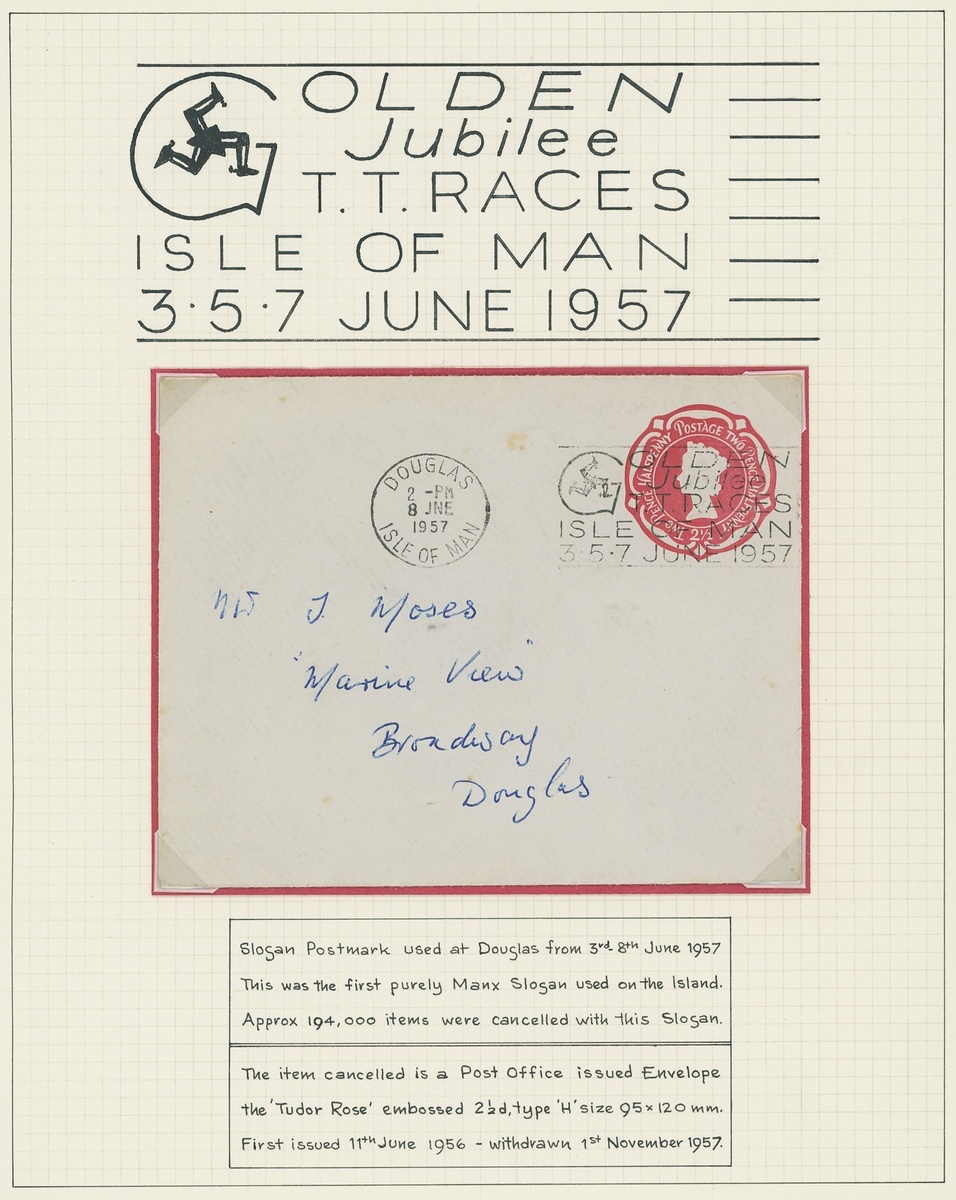 GOLDEN
Jubilee
T.T. RACES
ISLE OF MAN
3·5·7 JUNE 1957
POSTAGE TWO PENCE HALFPENNY
TWO PENCE HALFPENNY
2½
DOUGLAS
2 -PM
8 JNE
1957
ISLE OF MAN
GOLDEN
Jubilee
T.T. RACES
ISLE OF MAN
3·5·7 JUNE 1957
J. Moses
"Marine View"
Broadway
Douglas
Slogan Postmark used at Douglas from 3rd-8th June 1957
This was the first purely Manx Slogan used on the Island.
Approx 194,000 items were cancelled with this Slogan.
The item cancelled is a Post Office issued Envelope
the 'Tudor Rose' embossed 2½d, type 'H' size 95×120 mm.
First issued 11th June 1956 - withdrawn 1st November 1957.